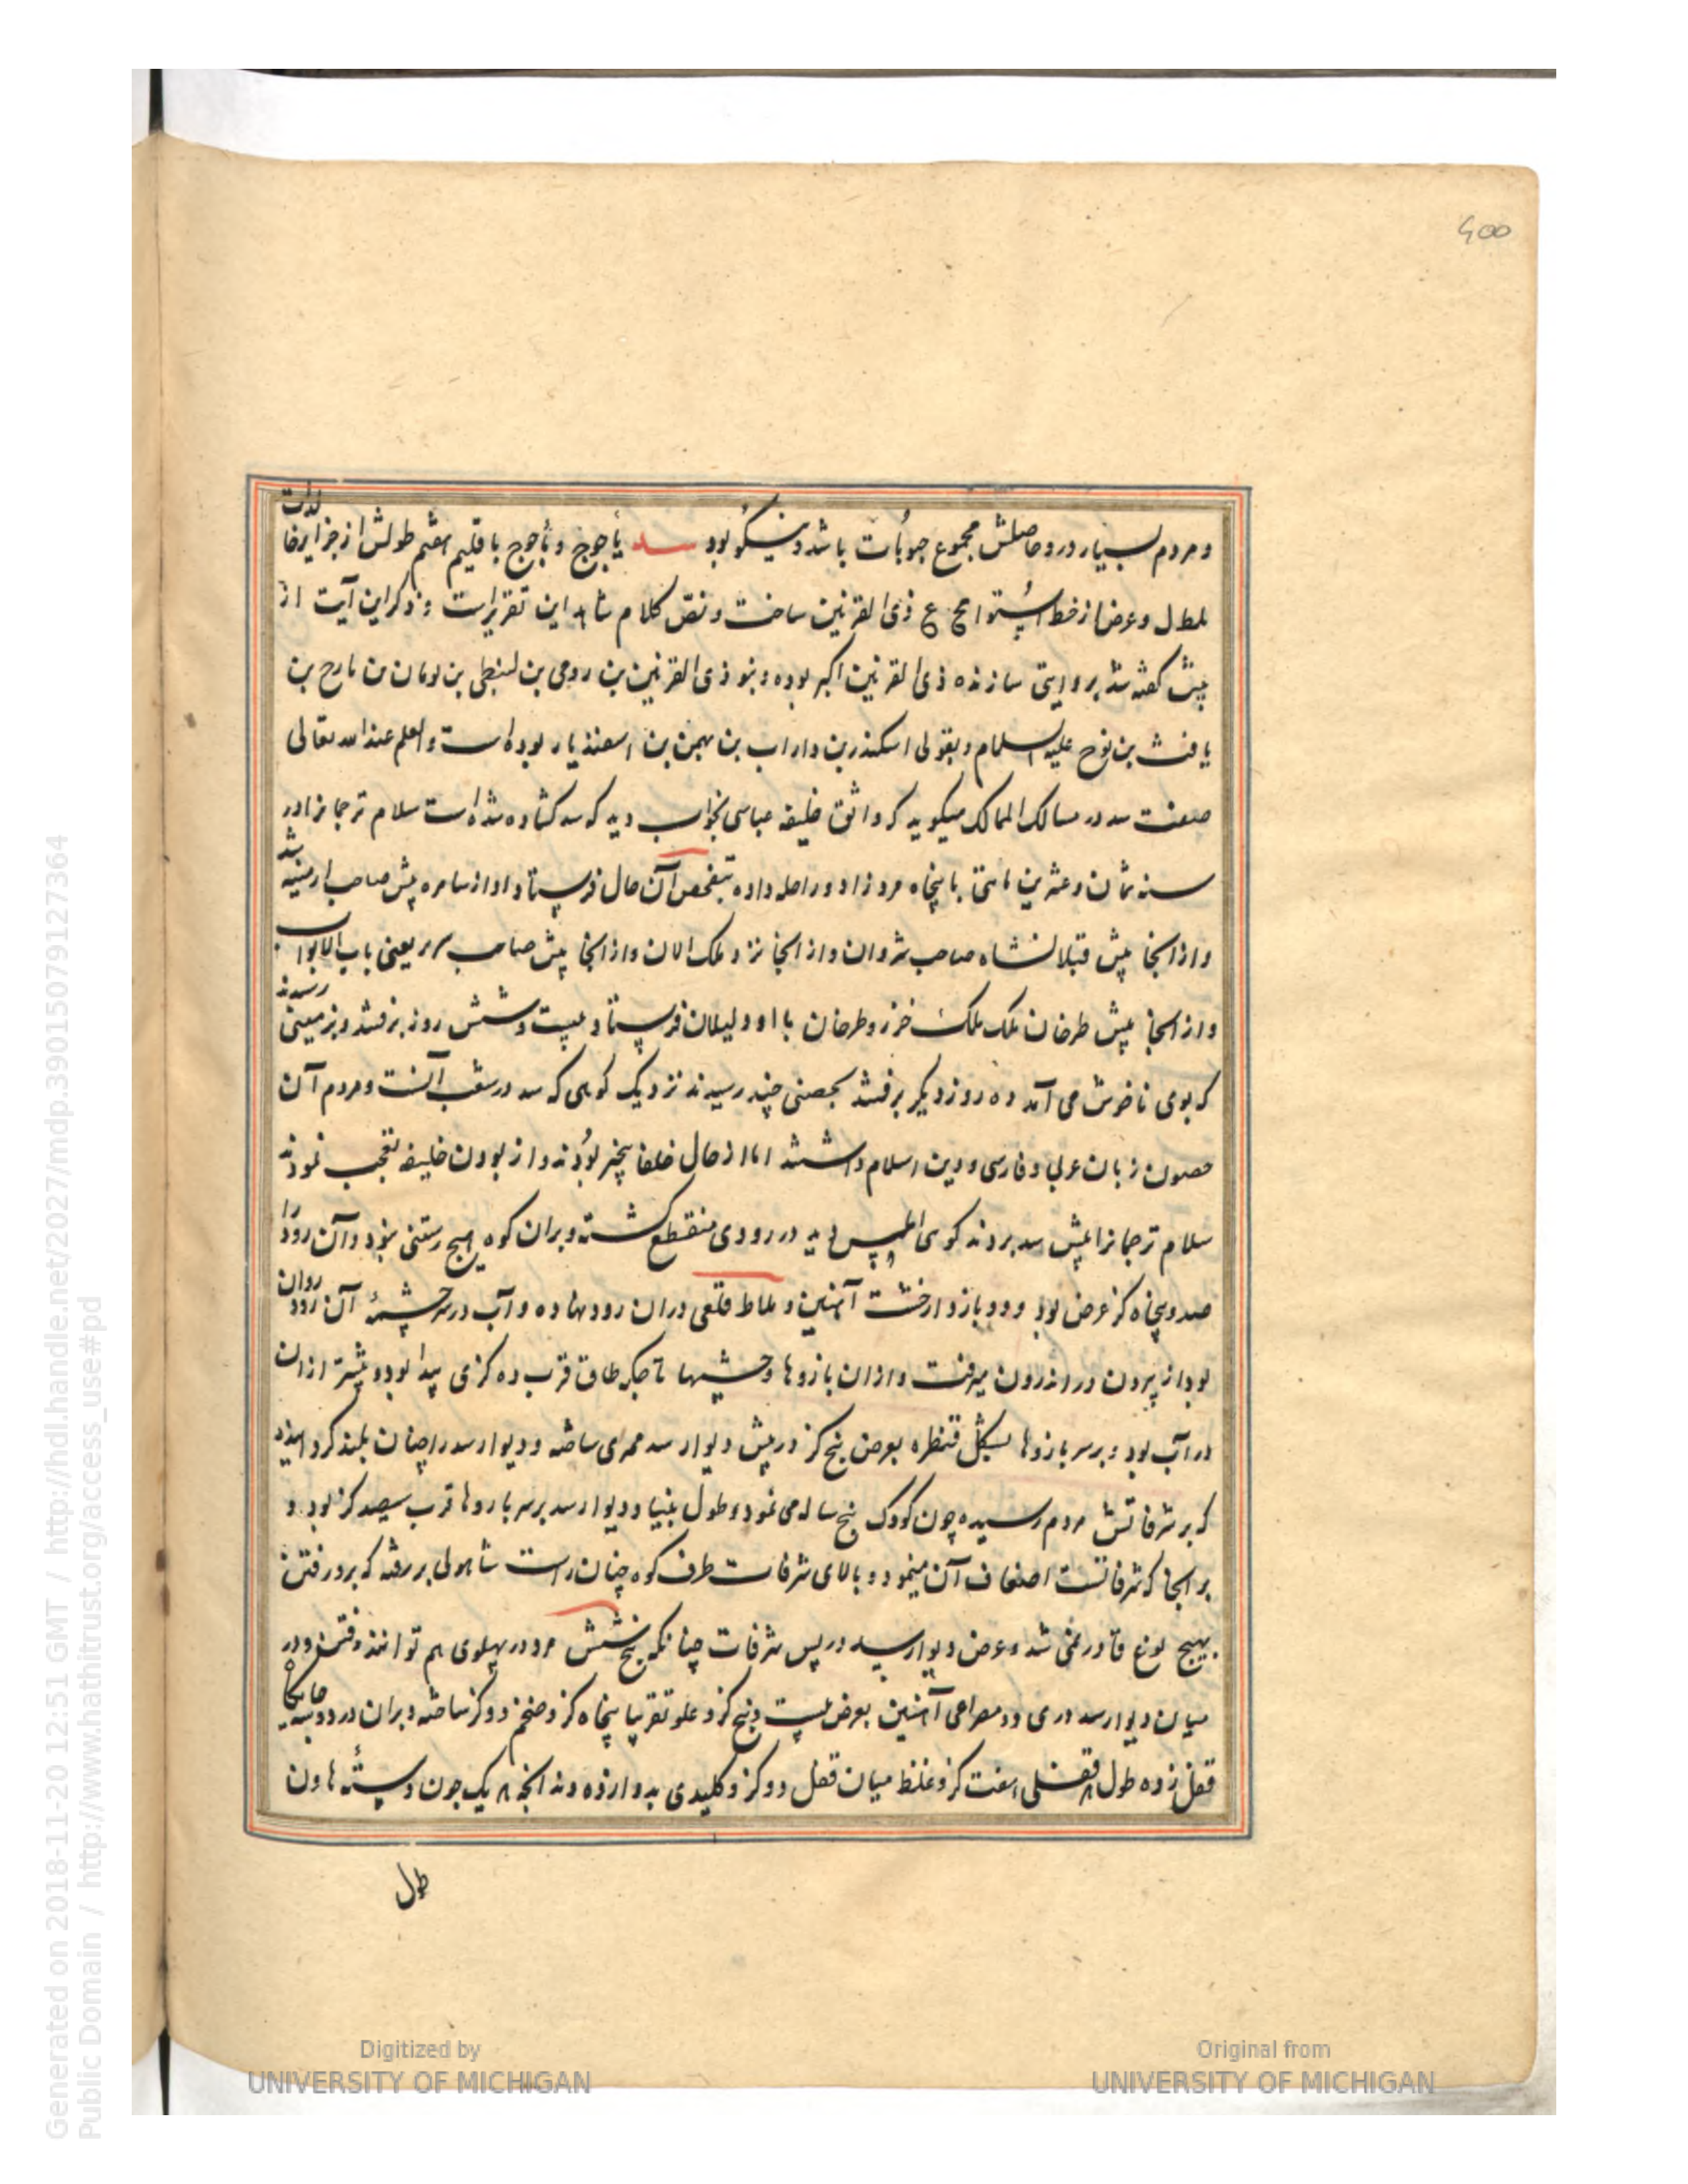 400
و مردم بسیار درو حاصلش مجموع حبوبات باشد و نیکو بود سد یأجوج و مأجوج باقلیم هفتم طولش از جزایر خالدات
و عرض از خط استوا مح ع ذی القرنین ساخت و نص کلام شاهد این تقریرست و ذکر این آیت از
پیش گفته شد بروایتی سازنده ذی القرنین اکبر بوده و بنو ذی القرنین بن رومی بن لنطی بن یونان بن مارح بن
یافث بن نوح علیه السلام و بقولی اسکندر بن داراب بن بهمن بن اسفندیار بوده است و العلم عند الله تعالی
صنعت سد در مسالک الممالک میکوید که واثق خلیفه عباسی بخواب دید که سد کشاده شده است سلام ترجمانرا در
سنه ثمان و عشرین مائتی با پنجاه مرد زاد و راحله داده بتفحص آن حال فرستاد او از سامره پیش صاحب ارمنیه شد
و از آنجا پیش قیلانشاه صاحب شروان و از آنجا نزد ملک الان و از آنجا پیش صاحب سریر یعنی باب الابواب
و از آنجا پیش طرخان ملک ملک خزر و طرخان با او دلیلان فرستاد بیست و شش روز برفتند و بزمینی رسیدند
که بوی ناخوش می آمد ده روز دیگر برفتند بحصنی چند رسیدند نزدیک کوهی که سد در شعب آنست و مردم آن
حصون زبان عربی و فارسی و دین اسلام داشتند اما از حال خلفا بیخبر بودند و از بودن خلیفه تعجب نمودند
سلام ترجمانرا پیش سد بردند کوهی املس دید در رودی منقطع کشته و بران کوه هیچ رستنی نبود و آن رود را
صد و پنجاه کز عرض بود و دو بازو از خشت آهنین و ملاط قلعی دران رود نهاده و آب در سرچشمهٔ آن رود روان
بود از بیرون در اندرون میرفت و از ان بازوها و خشتها تا جکر طاق قرب ده کزی پیدا بود و بیشتر ازان
در آب بود و بر سر بازوها بشکل قنطره بعرض پنج کز در پیش دیوار سد ممری ساخته و دیوار سد را چنان بلند کردانیده
که بر شرفاتش مردم رسیده چون کودک پنج ساله می نمود و طول بنیاد دیوار سد بر سر بازوها قرب سیصد کز بود و
بر آنجا که شرفاتست اضعاف آن مینمود و بالای شرفات طرف کوه چنان راست شاهولی بر رفته که برو رفتن
بهیچ نوع قادر نمی شد و عرض دیوار سد در پس شرفات چنانکه پنج شش مرد در پهلوی هم توانند رفتن و در
میان دیوار سد دری دو مصراعی آهنین بعرض بیست و پنج کز و علو تقریبا پنجاه کز و ضخم دو کز ساخته و بران در دو بسته
قفل زده طول هر قفلی هفت کز و غلظ میان قفل دو کز و کلیدی بدوازده دندانجه هر یک چون دستهٔ هاون
طول
Generated on 2018-11-20 12:51 GMT / http://hdl.handle.net/2027/mdp.39015079127364
Public Domain / http://www.hathitrust.org/access_use#pd
Digitized by
UNIVERSITY OF MICHIGAN
Original from
UNIVERSITY OF MICHIGAN